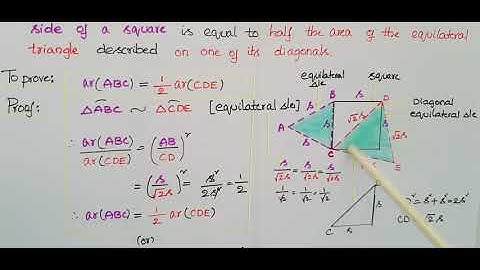 side of a square is equal to half the area of the equilateral
triangle described on one of its diagonals.
To prove: ar(ABC) = 1/2 ar(CDE)
Proof: ΔABC ~ ΔCDE [equilateral Δles]
∴ ar(ABC)/ar(CDE) = (AB/CD)²
= (s/√2s)² = s²/2s² = 1/2
∴ ar(ABC) = 1/2 ar(CDE)
(or)
equilateral Δle
square
Diagonal equilateral Δle
A
B
C
D
E
s
√2s
s/√2s = s/√2s = s/√2s
1/√2 = 1/√2 = 1/√2
C
s
s
= s² + s² = 2s²
CD = √2s